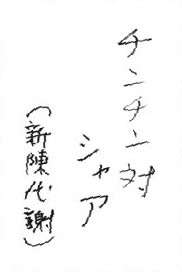 チンチン対
シャア
（新陳代謝）